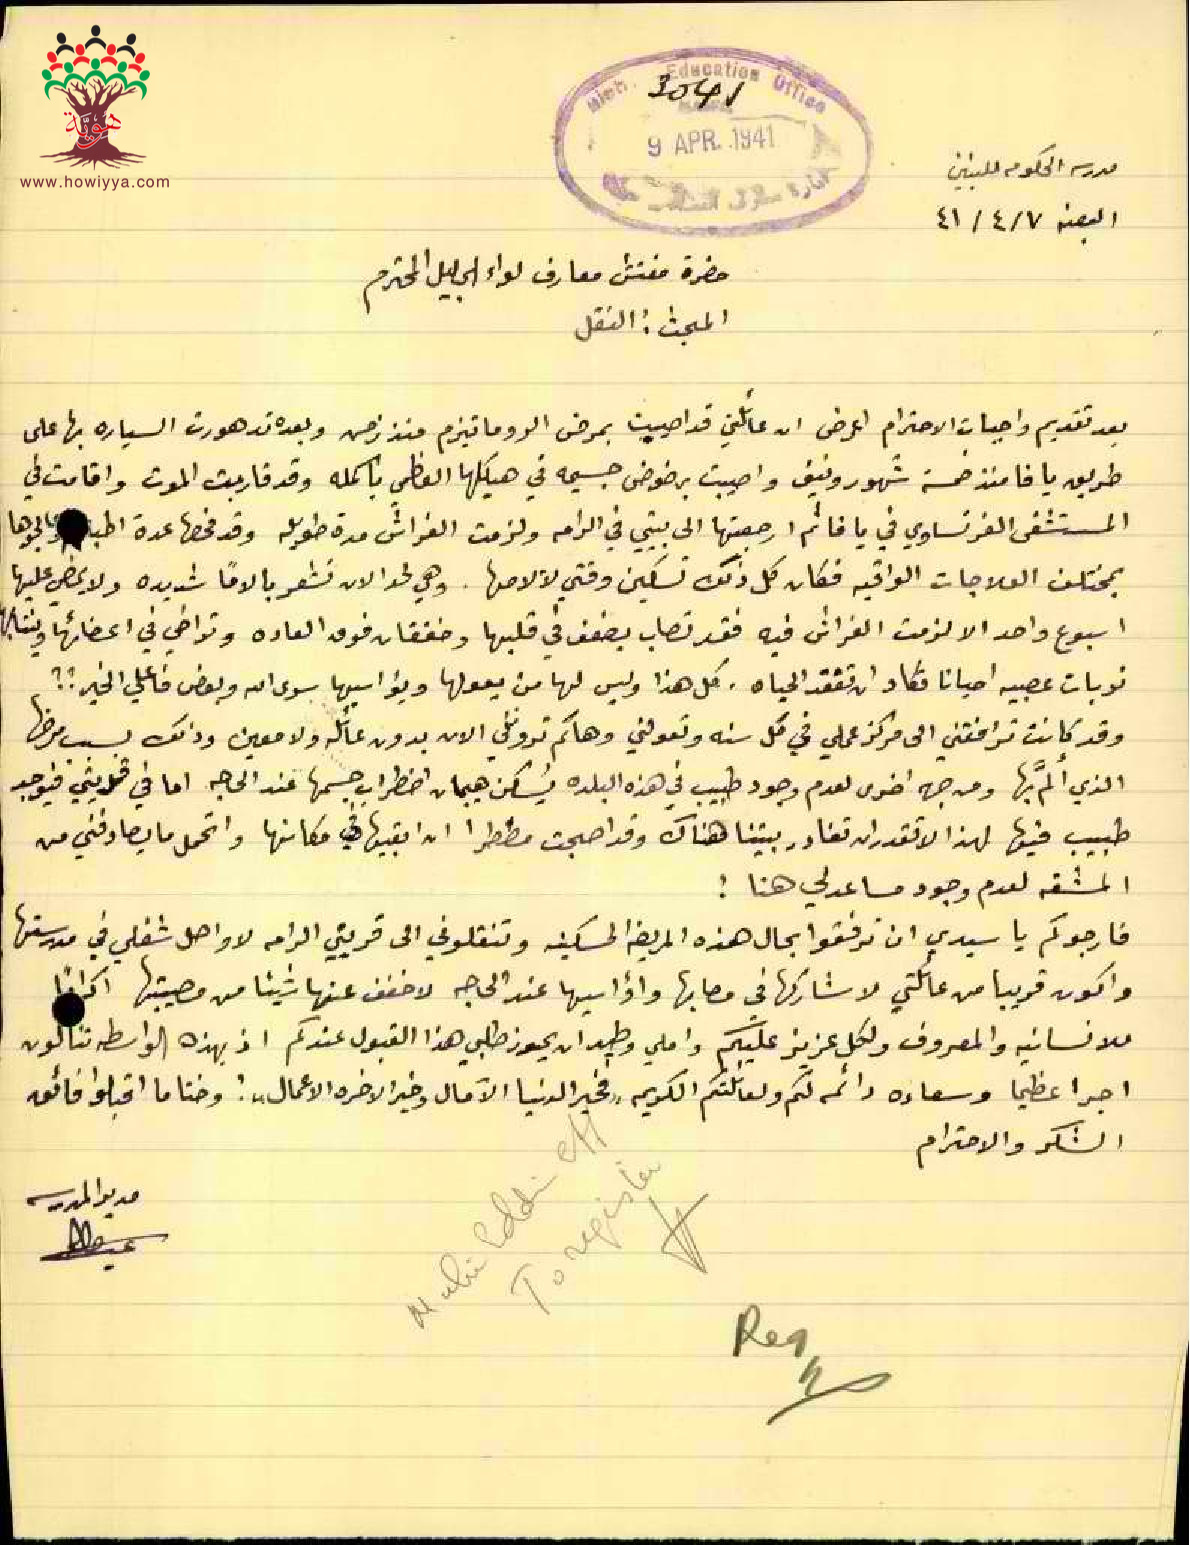 هويّة
www.howiyya.com
Education Office
3041
9 APR. 1941
مدرسة الحكومه للبنين
البعنه ٤١/٤/٧
حضرة مفتش معارف لواء الجليل المحترم
المبحث: النقل
بعد تقديم واجبات الاحترام اعرض ان عائلتي قد اصيبت بمرض الروماتيزم منذ زمن وبعده تدهورت السياره بها على
طريق يافا منذ خمسة شهور ونيف واصيبت برضوض جسيمه في هيكلها العظمي باكمله وقد قاربت الموت واقامت في
المستشفى الفرنساوي في يافا ثم ارجعتها الى بيتي في الرامه ولزمت الفراش مدة طويله وقد فحصها عدة اطباء وعالجوها
بمختلف العلاجات الواقيه فكان كل ذلك تسكين وقتي لآلامها. وهي لحد الان تشعر بالامًا شديده ولا يمضي عليها
اسبوع واحد الا لزمت الفراش فيه فقد تصاب بضعف في قلبها وخفقان فوق العاده وتراخي في اعضائها وينتابها
نوبات عصبيه احيانا تكاد ان تفقد الحياه. كل هذا وليس لها من يعولها ويؤاسيها سوى الله وبعض فاعلي الخير؟!
وقد كانت ترافقني الى مركز عملي في كل سنه وتعولني وهاكم تروني الان بدون عائله ولا معين وذلك بسبب مرضها
الذي ألمّ بها ومن جهه اخرى لعدم وجود طبيب في هذه البلده يُسكن هيجان اضطراب جسمها عند الحاجه اما في قريتي فيوجد
طبيب فيها لهذا لا تقدر ان تغادر بيتنا هناك وقد اصبحت مضطرا ان ابقيها في مكانها واتحمل ما يصادفني من
المشقه لعدم وجود مساعد لي هنا!
فارجوكم يا سيدي ان ترفقوا بحال هذه المريضه المسكينه وتنقلوني الى قريتي الرامه لاواصل شغلي في مدرستها
واكون قريبا من عائلتي لاشاركها في مصابها واؤاسيها عند الحاجه لاخفف عنها شيئا من مصيبتها اكرامًا
للانسانيه والمعروف ولكل عزيز عليكم واملي وطيد ان يحوز طلبي هذا القبول عندكم اذ بهذه الواسطه تنالون
اجرا عظيما وسعاده دائمه لكم ولعائلتكم الكريمه "فخير الدنيا الآمال وخير الاخره الاعمال"! وختاما اقبلوا فائق
الشكر والاحترام
مدير المدرسه
Muhieddin eff
To register
Reg